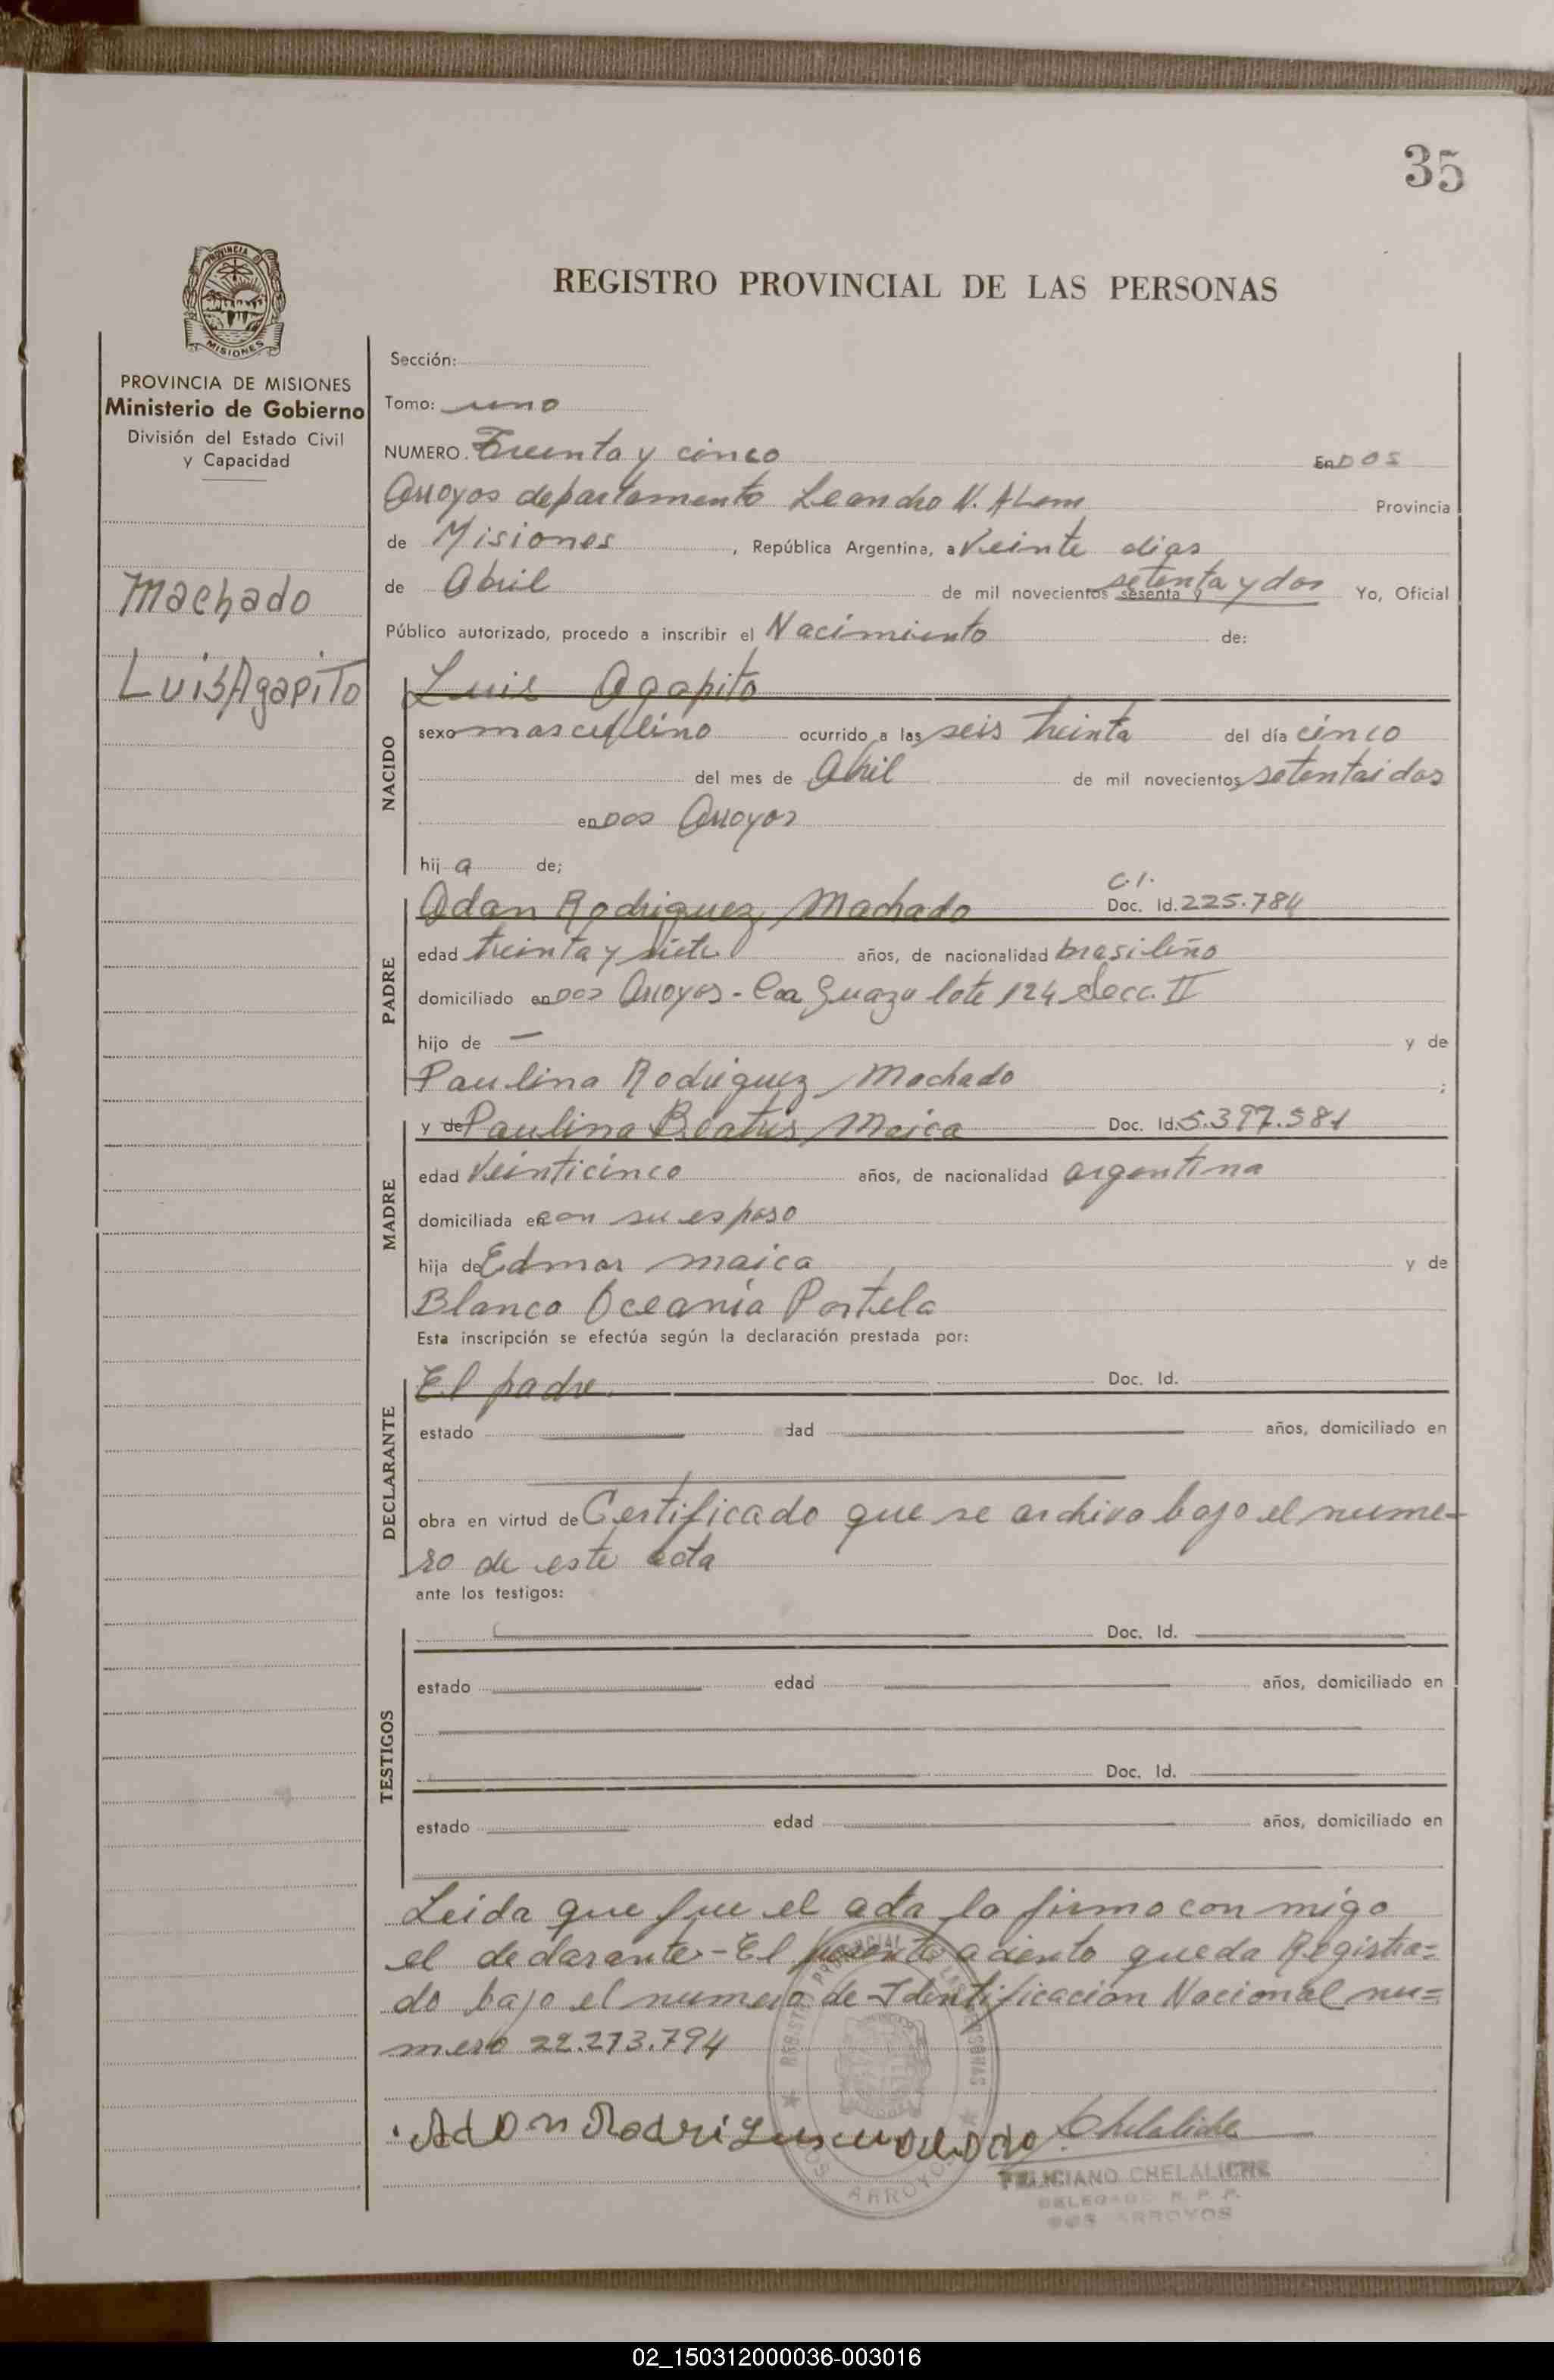 35
PROVINCIA DE MISIONES
Ministerio de Gobierno
División del Estado Civil
y Capacidad
Machado
Luis Agapito
REGISTRO PROVINCIAL DE LAS PERSONAS
Sección:
Tomo: uno
NUMERO. Treinta y cinco En Dos
Arroyos departamento Leandro N. Alem Provincia
de Misiones, República Argentina, a Veinte dias
de Abril de mil novecientos sesenta y setenta y dos Yo, Oficial
Público autorizado, procedo a inscribir el Nacimiento de:
NACIDO
Luis Agapito
sexo masculino ocurrido a las seis treinta del día cinco
del mes de Abril de mil novecientos setentaidos
en Dos Arroyos
hij a de;
PADRE
C.I.
Adan Rodriguez Machado Doc. Id. 225.784
edad treinta y siete años, de nacionalidad brasileño
domiciliado en Dos Arroyos - Caa Guazu lote 124 Secc. II
hijo de — y de
Paulina Rodriguez Machado ;
MADRE
y de Paulina Beatris Maica Doc. Id. 5.397.581
edad Veinticinco años, de nacionalidad argentina
domiciliada en con su esposo
hija de Edmar maica y de
Blanca Oceania Portela
Esta inscripción se efectúa según la declaración prestada por:
DECLARANTE
El padre. Doc. Id.
estado dad años, domiciliado en
obra en virtud de Certificado que se archiva bajo el nume-
ro de este acta
ante los testigos:
TESTIGOS
Doc. Id.
estado edad años, domiciliado en
Doc. Id.
estado edad años, domiciliado en
Leida que fue el acta la firma con migo
el declarante - El presente aciento queda Registra=
do bajo el numero de Identificacion Nacional nu=
mero 22.273.794
Chelaliche
FELICIANO CHELALICHE
DELEGADO R. P. P.
DOS ARROYOS
02_150312000036-003016